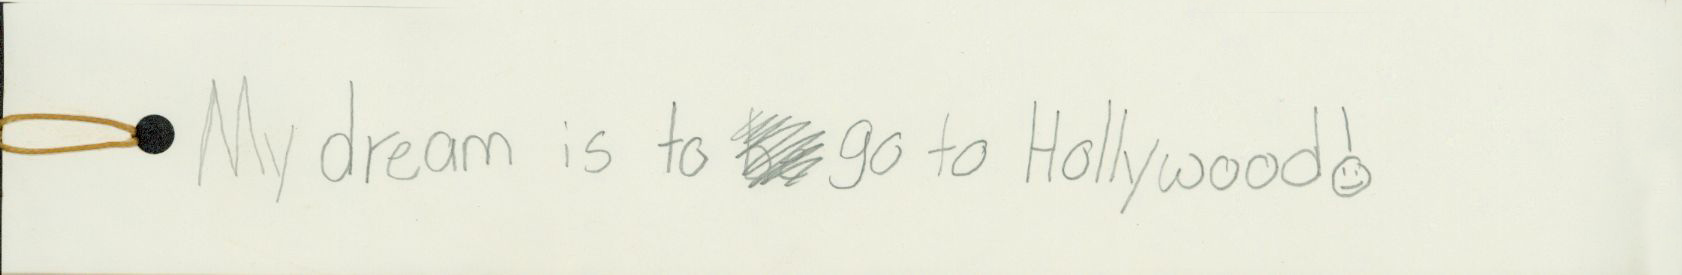 My dream is to go to Hollywood!